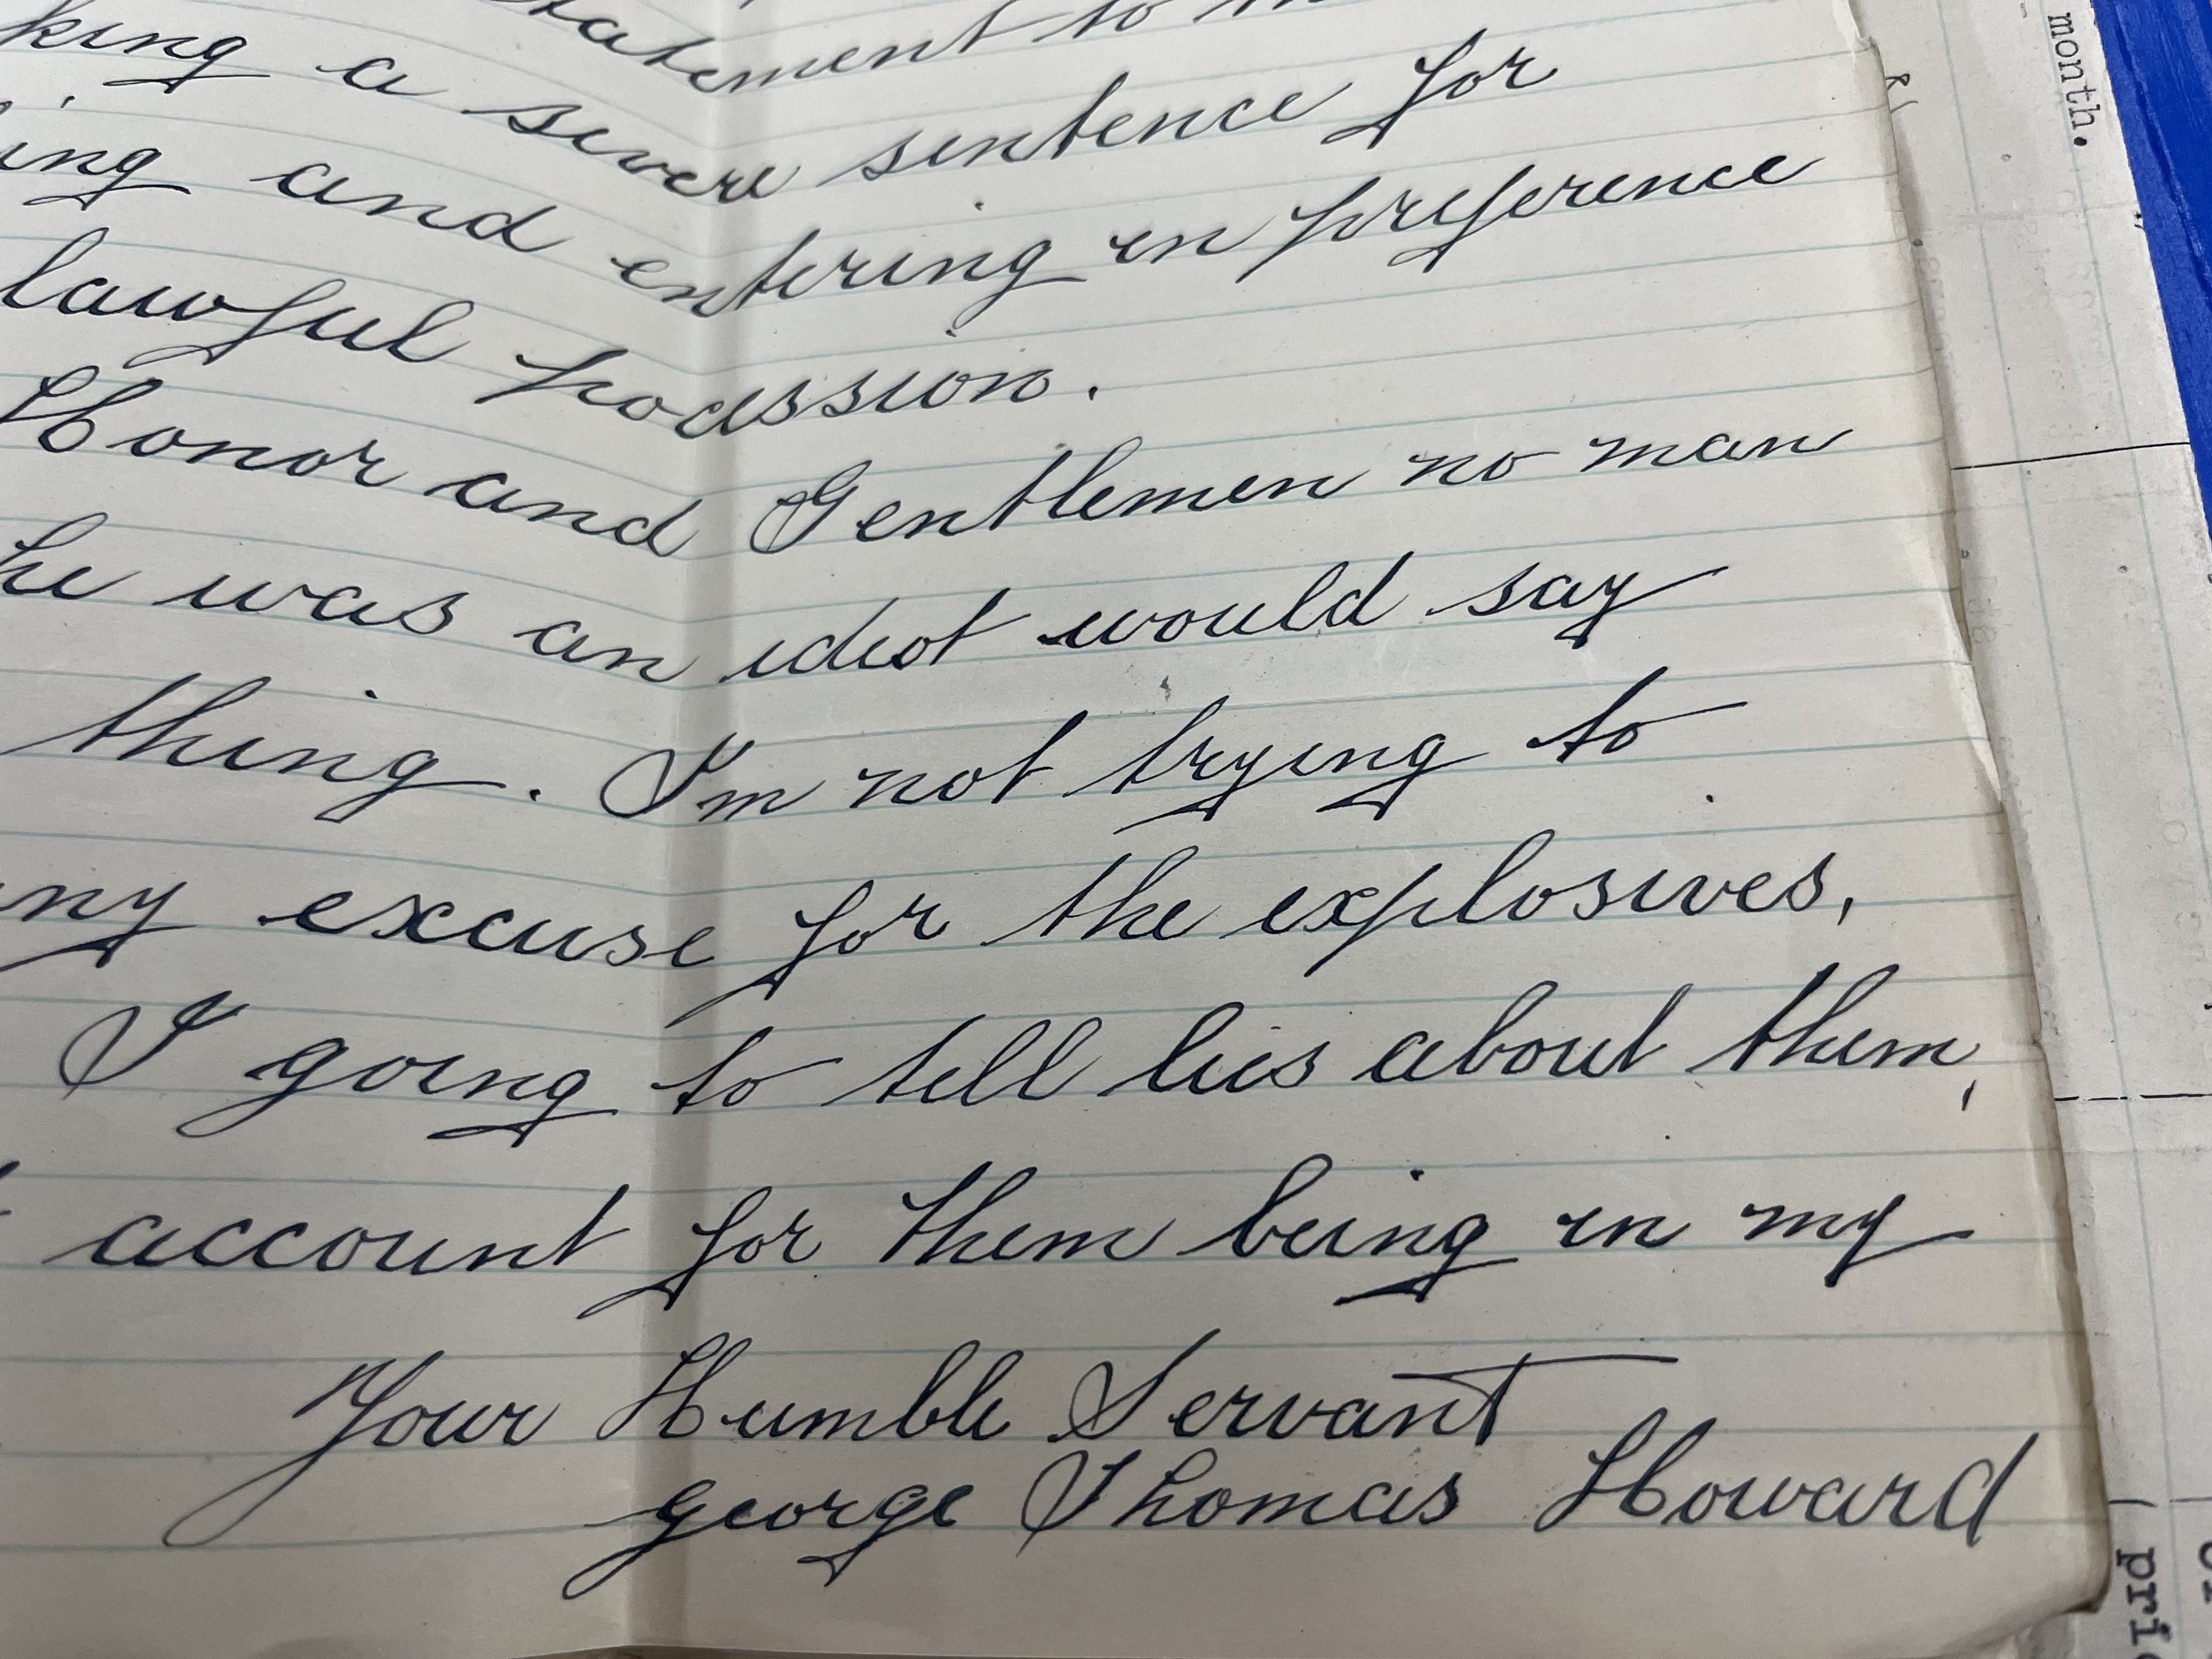 statement to
king a severe sentence for
ing and entering in preference
lawful pocession.
Honor and Gentlemen no man
he was an idiot would say
thing. I'm not trying to
ny excuse for the explosives,
I going to tell lies about them,
account for them being in my
Your Humble Servant
george Thomas Howard
month.